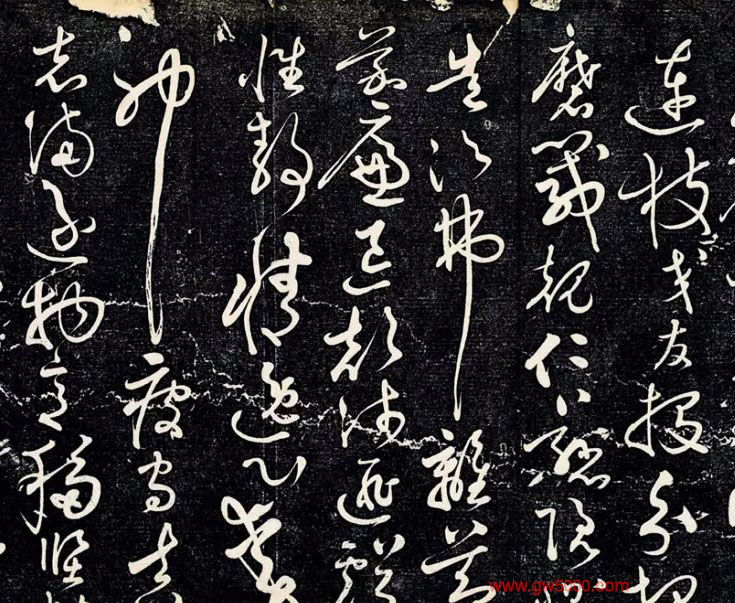 連枝交友投分切
磨箴規仁慈隱惻
造次弗離節
義廉退顛沛匪虧
性靜情逸心動
神疲守真
志滿逐物意移堅持
www.gw5030.com